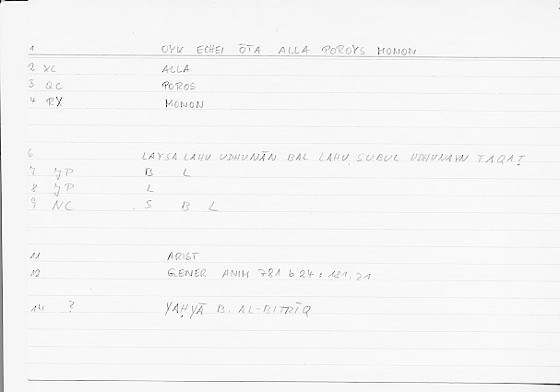 1 OYK ECHEI ŌTA ALLA POROYS MONON
2 XC ALLA
3 QC POROS
4 RX MONON
6 LAYSA LAHU UDHUNĀN BAL LAHU SUBUL UDHUNAYN FAQAṬ
7 JP B L
8 JP L
9 NC S B L
11 ARIST
12 GENER ANIM 781 b 24 : 181,21
14 ? YAḤYĀ B. AL-BIṬRĪQ